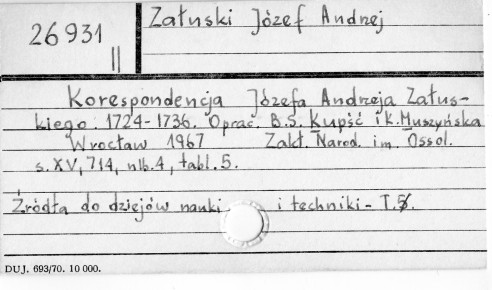 26931
II
Załuski Józef Andrzej
Korespondencja Józefa Andrzeja Załus-
kiego 1724-1736. Oprac. B.S. Kupść i K. Muszyńska
Wrocław 1967 Zakł. Narod. im. Ossol.
s. XV, 714, nlb. 4, tabl. 5.
Źródła do dziejów nauki i techniki - T.
DUJ. 693/70. 10 000.